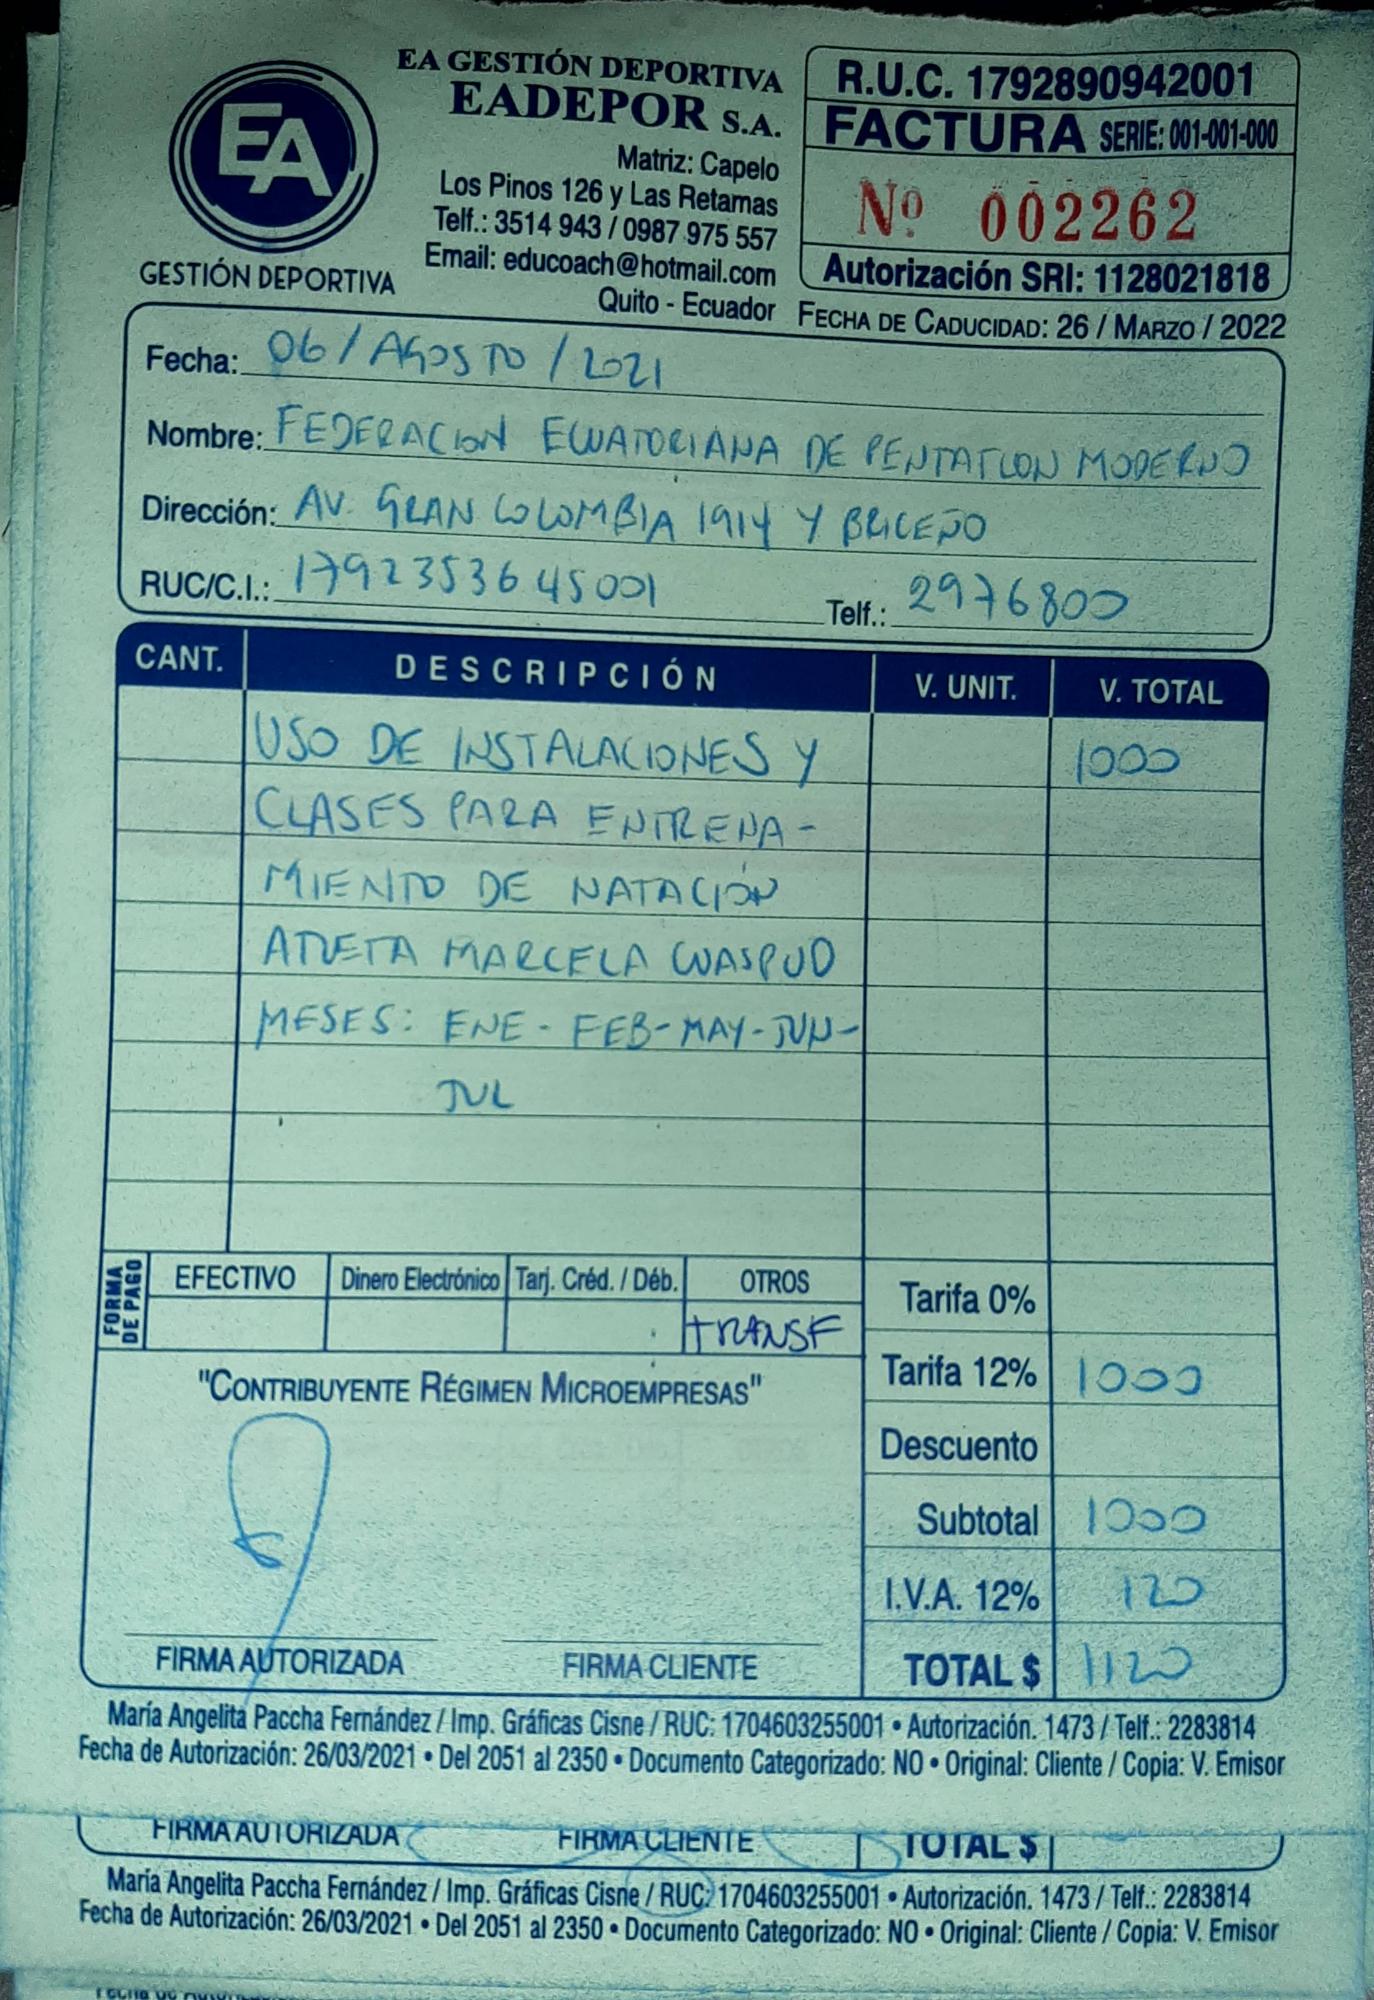 EA
GESTIÓN DEPORTIVA
EA GESTIÓN DEPORTIVA
EADEPOR S.A.
Matriz: Capelo
Los Pinos 126 y Las Retamas
Telf.: 3514 943 / 0987 975 557
Email: educoach@hotmail.com
Quito - Ecuador
R.U.C. 1792890942001
FACTURA SERIE: 001-001-000
Nº 002262
Autorización SRI: 1128021818
FECHA DE CADUCIDAD: 26 / MARZO / 2022
Fecha: 06/AGOSTO/2021
Nombre: FEDERACION ECUATORIANA DE PENTATLON MODERNO
Dirección: AV. GRAN COLOMBIA 1914 Y BRICEÑO
RUC/C.I.: 1792353645001 Telf.: 2976800
CANT. DESCRIPCIÓN V. UNIT. V. TOTAL
USO DE INSTALACIONES Y 1000
CLASES PARA ENTRENA-
MIENTO DE NATACIÓN
ATLETA MARCELA CUASPUD
MESES: ENE-FEB-MAY-JUN-
JUL
FORMA DE PAGO EFECTIVO Dinero Electrónico Tarj. Créd. / Déb. OTROS
TRANSF
Tarifa 0%
Tarifa 12% 1000
Descuento
Subtotal 1000
I.V.A. 12% 120
TOTAL $ 1120
"CONTRIBUYENTE RÉGIMEN MICROEMPRESAS"
FIRMA AUTORIZADA FIRMA CLIENTE
María Angelita Paccha Fernández / Imp. Gráficas Cisne / RUC: 1704603255001 • Autorización. 1473 / Telf.: 2283814
Fecha de Autorización: 26/03/2021 • Del 2051 al 2350 • Documento Categorizado: NO • Original: Cliente / Copia: V. Emisor
FIRMA AUTORIZADA FIRMA CLIENTE TOTAL $
María Angelita Paccha Fernández / Imp. Gráficas Cisne / RUC: 1704603255001 • Autorización. 1473 / Telf.: 2283814
Fecha de Autorización: 26/03/2021 • Del 2051 al 2350 • Documento Categorizado: NO • Original: Cliente / Copia: V. Emisor